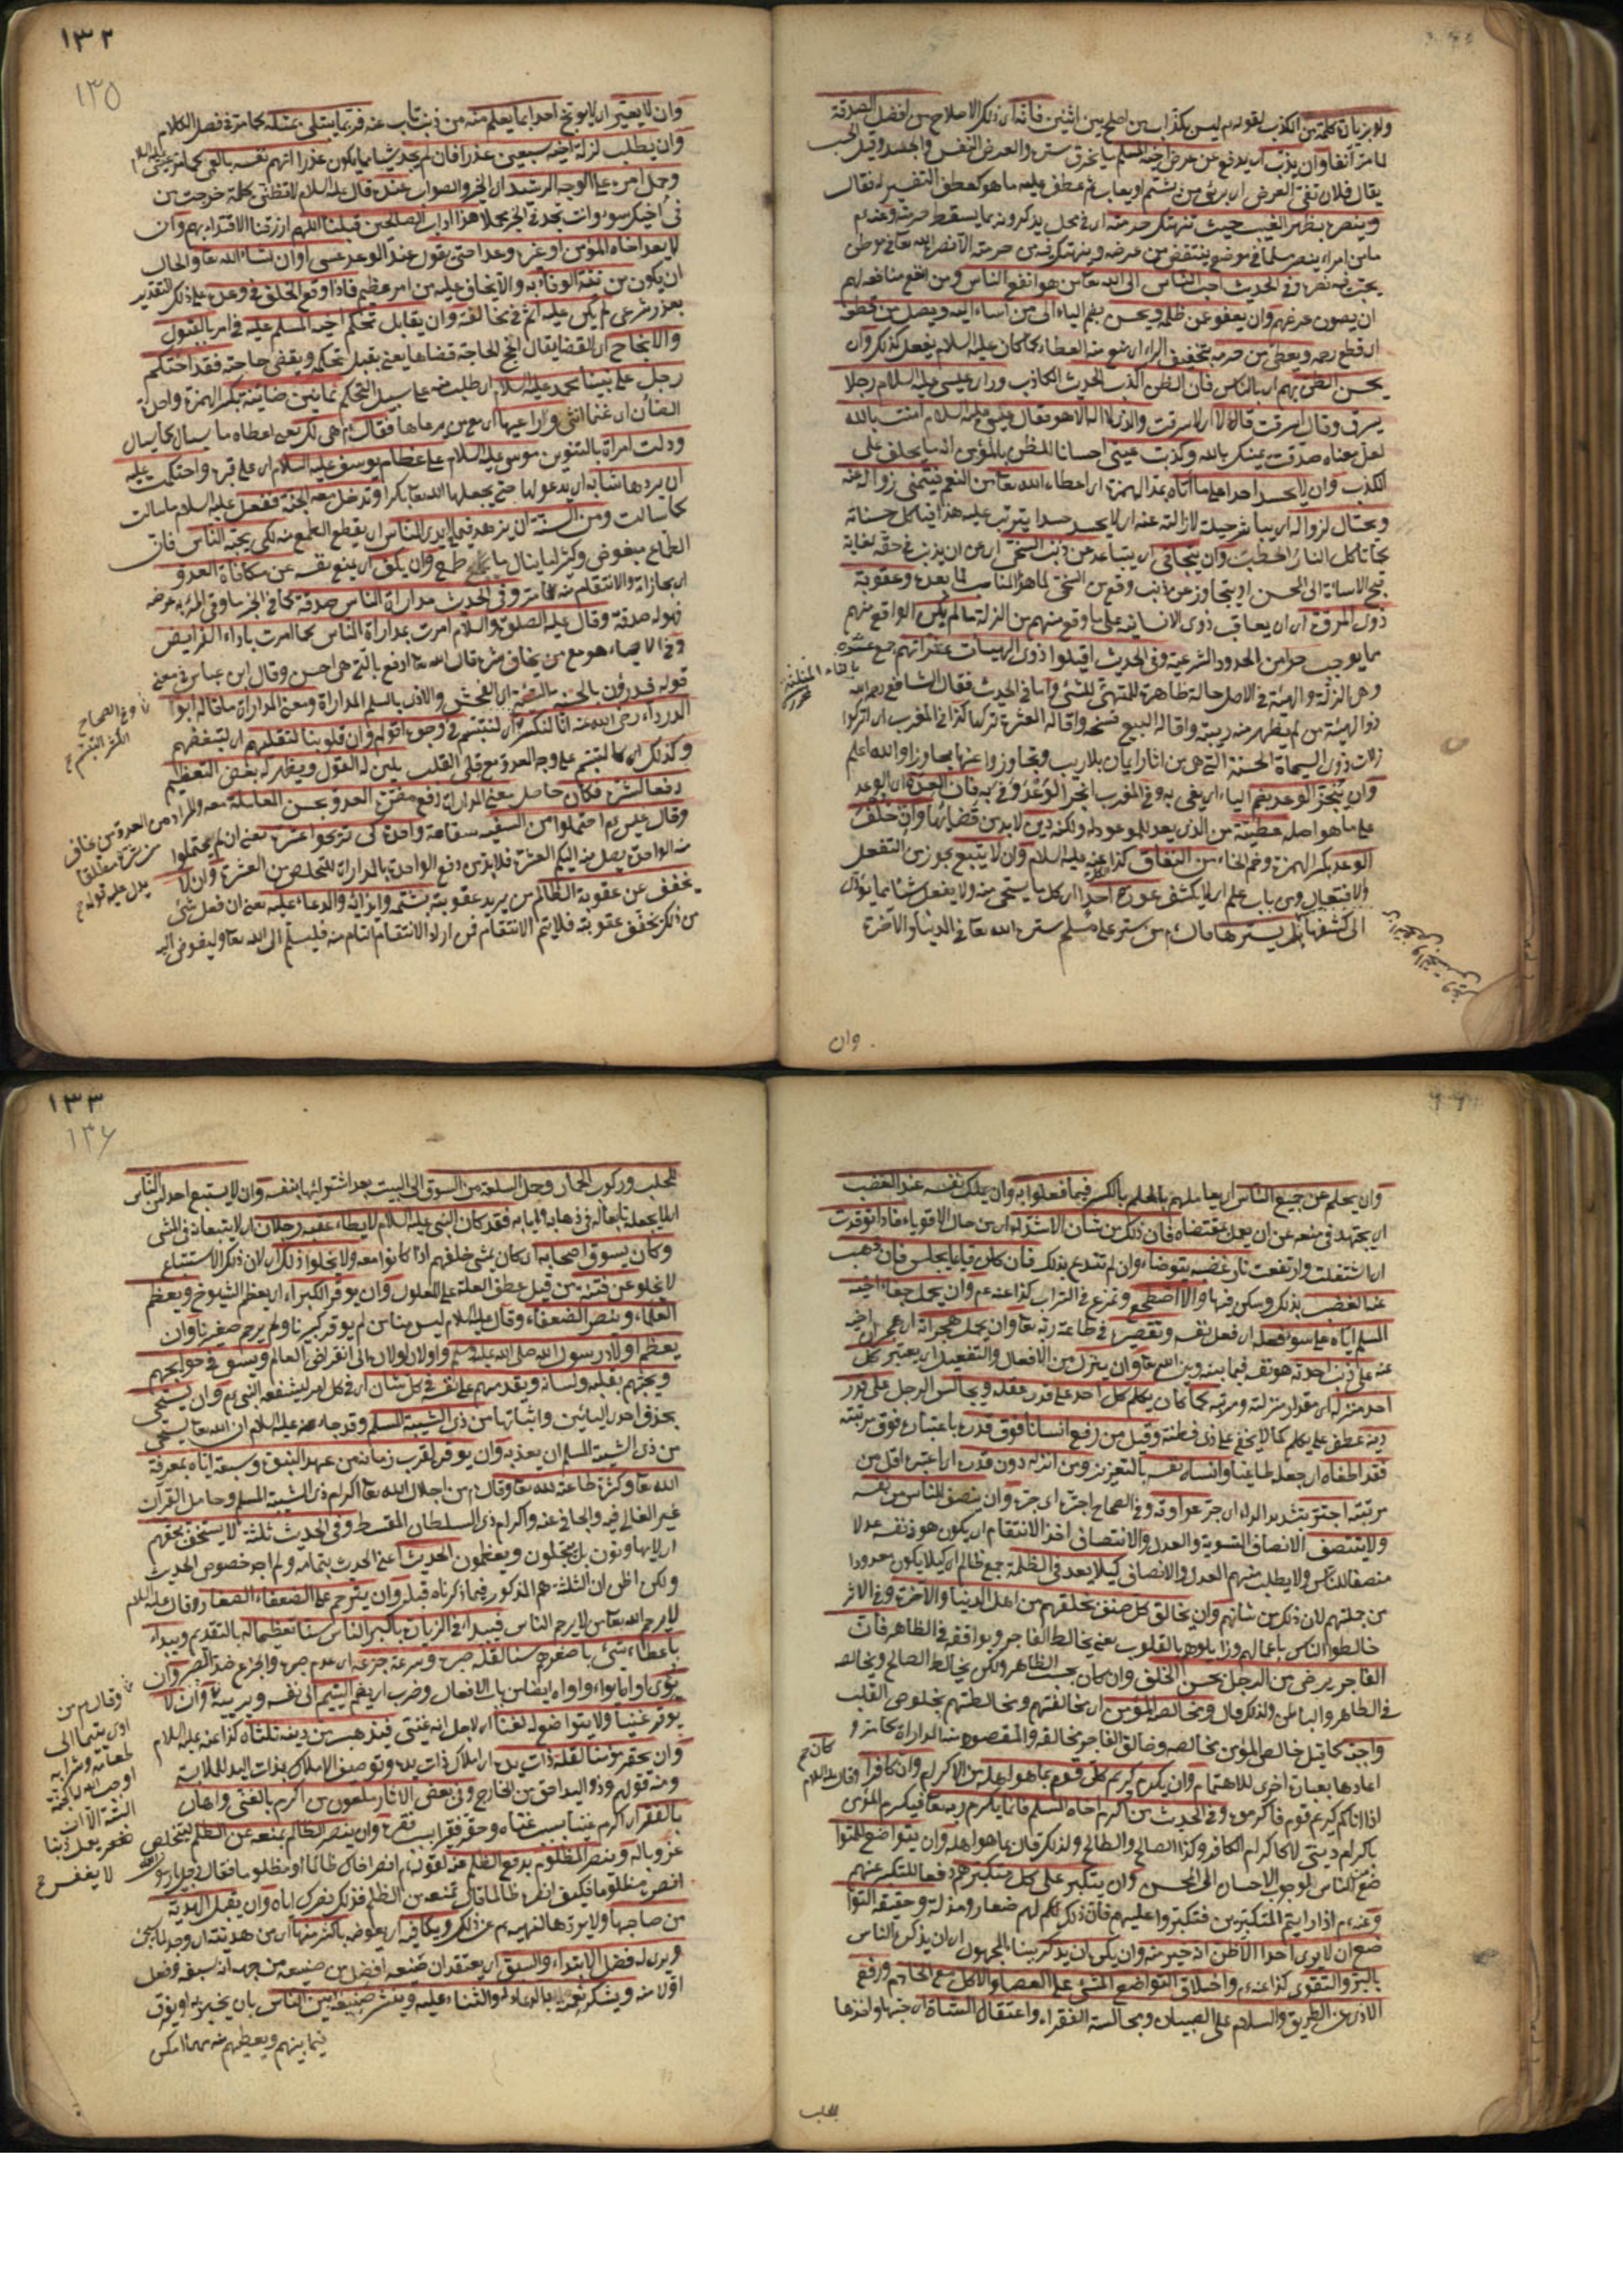 ولو بزيادة كلمة من الكذب لقوله م ليس بكذاب من اصلح بين اثنين فانه اى ذلك الاصلاح من افضل الصدقة
لما مر آنفا وان يذب اى يدفع عن عرض اخيه المسلم
يقال فلان نقى العرض اى برئ من ان يشتم او يعاب
وينصره بظهر الغيب حيث تنتهك حرمته اى فى محل يذكرونه بما يسقط حرمته وعنه م
ما من امرء ينصر مسلما فى موضع ينتقص من عرضه وينتهك فيه من حرمته الا نصره الله تعا فى موطن
يحب فيه نصره وفى الحديث احب الناس الى الله تعا من هو انفع الناس ومن انفع منافعه لهم
ان يصون عرضهم وان يعفو عن ظلمه ويحسن بضم الياء الى من اساء اليه ويصل من قطعه
اى قطع رحمه ويعطى من حرمه بتخفيف الراء اى منع منه العطاء كما كان عليه السلام يفعل كذلك وان
يحسن الظن بهم اى بالناس فان الظن اكذب الحديث الكاذب وراى عيسى عليه السلام رجلا
يسرق وقال اسرقت قال لا اى لا سرقت والذى لا اله الا هو فقال عيسى عليه السلام امنت بالله
لعل معناه صدقت يمينك بالله وكذبت عينى احسانا للظن بالمؤمن انه ما يحلف على
الكذب وان لا يحسد احدا على ما اتاه بمد الهمزة اى اعطاه الله تعا من النعم فيتمنى زواله عنه
ويحتال لزواله اى يباشر حيلة لازالته عنه اى لا يحسد حسدا يترتب عليه هذا فيأكل حسناته
كما تأكل النار الحطب وان يتجافى اى يتباعد عن ذنب السخى
ذوى المروة اى ان يعاقب ذوى الانسانية على ما وقع منهم من الزلة ما لم يكن الواقع منهم
مما يوجب حدا من الحدود الشرعية وفى الحديث اقيلوا ذوى الهيئات عثراتهم جمع عثرة
وهى الزلة والهيئة فى الاصل حالة ظاهرة للمتهيئ للشئ واما فى الحديث فقال الشافعى رحمه الله
ذو الهيئة من لم يظهر منه ريبة واقالة البيع فسخه واقالة العثرة تركها كذا فى المغرب اى اتركوا
زلات ذوى السيماة الحسنة التى هى من اثار ايمان بلا ريب وتجاوزوا عنها والله اعلم
وان ينجز الوعد بضم الياء اى يفى به وفى المغرب انجز الوعد وفى به فان العدة اى الوعد
على ما هو اصله عطية من الذى يعد للموعود له ولكنه دين لا بد من قضائها وان خلف
الوعد بكسر الهمزة وضم الخاء من النفاق كذا عنه عليه السلام وان لا يتبع يجوز من التفعل
والافتعال ومن باب علم اى لا يكشف عورة احد اى كل ما يستحى منه ولا يفعل شيئا مما يؤول
الى كشفها بل يسترها قال م من ستر على مسلم ستره الله تعا فى الدنيا والآخرة
وان
١٣٢
١٣٥
وان لا يعير اى لا يوبخ احدا بما يعلم منه من ذنب تاب عنه فربما يبتلى بمثله كما مر فى فصل الكلام
وان يطلب لزلة اخيه سبعين عذرا فان لم يجد شيئا مما يكون عذرا اتهم نفسه بالعمى
وحمل امره على الوجه الرشيد اى الخير والصواب عنده قال عليه السلام لا تظنن بكلمة خرجت من
فى اخيك سوء وانت تجد فى الخير محملا هذا اداب الصالحين قبلنا اللهم ارزقنا الاقتداء بهم وان
لا يعد اخاه المؤمن او غيره وعدا حتى يقول عند الوعد عسى او ان شاء الله تعا والحال
ان يكون من نيته الوفاء به
بعذر شرعى لم يكن عليه اثم فى مخالفته وان يقابل تحكم اخيه المسلم عليه فى امر بالقبول
والانجاح اى القضا يقال انجح الحاجة قضاها يعنى يقبل تحكمه ويقضى حاجته فقد احتكم
رجل على نبينا محمد عليه السلام اى طلب منه على سبيل التحكم ثمانين ضائنة بكسر الهمزة واحدة
الضأن اى غنما انثى وراعيها اى مع من يرعاها فقال م هى لك يعنى اعطاه ما يسأل كما يسأل
ودلت امرأة بالتنوين موسى عليه السلام على عظام يوسف عليه السلام اى على قبره واحتكمت عليه
ان يردها شابة اى يدعو لها حتى يجعلها الله تعا بكرا وتدخل معه الجنة ففعل عليه السلام ما سالت
كما سالت ومن السنة ان يزهد فيما بايدى الناس اى يقطع الطمع منه لكى يحبه الناس فان
الطامع مبغوض وان يكف اى يمنع نفسه عن مكافاة العدو
اى مجازاة والانتقام منه لما مر وفى الحديث مداراة الناس صدقة كما فى الخبر ما وقى المرء به عرضه
فهو له صدقة وقال عليه الصلوة والسلام امرت بمداراة الناس كما امرت باداء الفرائض
وفى الاحياء هو مع من يخاف شره قال الله تعا ادفع بالتى هى احسن وقال ابن عباس فى معنى
قوله ويدرؤن بالحسنة السيئة اى الفحش والاذى بالسلم المداراة ومعنى المداراة ما قاله ابو
الدرداء رضى الله عنه انا لنكشر اى لنبتسم فى وجوه اقوام وان قلوبنا لتقليهم اى لتبغضهم
وكذلك اى كالتبسم على وجه العدو مع قلى القلب يلين له القول ويظهر له بعض التعظيم
دفعا لشره فكان حاصل معنى المداراة دفع مضرة العدو بحسن المعاملة معه
وقال عيسى م احتملوا من السفيه سفاهة واحدة كى تربحوا عشرة يعنى ان لم يحتملوا
يخفف عن عقوبة الظالم من يريد عقوبته بشتمه وايذائه والدعاء عليه يعنى ان فعل شئ
من ذلك يخفف عقوبته فلا يتم الانتقام فمن اراد الانتقام التام منه فليسلم الى الله تعا وليفوض اليه
وان يحلم عن جميع الناس اى يعاملهم بالحلم بالكسر فيما فعلوا به وان يملك نفسه عند الغضب
اى يجتهد فى منعه عن ان يعمل بمقتضاه فان ذلك من شأن الاشداء اى من حال الاقوياء فاذا توقدت
اى اشتعلت وارتفعت نار غضبه يتوضأ وان لم تندفع بذلك فان كان قائما يجلس فان ذهب
عنه الغضب بذلك وسكن فبها والا اضطجع وتمرغ فى التراب كذا عنه م وان يحمل جفاء اخيه
المسلم اياه على سوء فعله اى فعل نفسه وتقصيره فى طاعة ربه تعا وان يحمل هجرانه اى هجران اخيه
عنه على ذنب احدثه هو نفسه فيما بينه وبين الله تعا وان ينزل من الافعال والتفعيل اى يعتبر كل
احد منزله اى مقدار منزلته ومرتبته كما كان يكلم كل احد على قدر عقله ويجالس الرجل على قدر
دينه عطف على يكلم كما لا يخفى على ذى فطنة وقيل من رفع انسانا فوق قدره باعتباره فوق مرتبته
فقد اطغاه اى جعله طاغيا وانساه نفسه بالتعزيز ومن انزله دون قدره اى اعتبره اقل من
مرتبته اجتر بتشديد الراء اى جر عداوته وفى الصحاح اجتره اى جره وان ينصف للناس من نفسه
ولا ينتصف الانصاف التسوية والعدل والانتصاف اخذ الانتقام اى يكون هو ذو نفسه عدلا
منصفا للناس ولا يطلب منهم العدل والانصاف كيلا يعد فى الظلمة جمع ظالم اى كيلا يكون معدودا
من جملتهم لان ذلك من شانهم وان يخالق كل صنف بخلقهم من اهل الدنيا والآخرة وفى الاثر
خالطوا الناس باعمالهم وزايلوهم بالقلوب يعنى يخالط الفاجر ويوافقه فى الظاهر فان
الفاجر يرضى من الرجل بحسن الخلق وان كان بحسب الظاهر ولكن يخالط الصالح ويخالصه
فى الظاهر والباطن ولذلك قال ويخالص المؤمن اى مخالقتهم ومخالطتهم بخلوص القلب
واجبة كما قيل خالص المؤمن مخالصة وخالق الفاجر مخالقة والمقصود منه المداراة كما مر و
اعادها بعبارة اخرى للاهتمام وان يكرم كريم كل قوم بما هو اهله من الاكرام وان كان كافرا وقال عليه السلام
اذا اتاكم كريم قوم فاكرموه وفى الحديث من اكرم اخاه المسلم فانما يكرم ربه تعا فيكرم المؤمن
باكرام دينى لا كاكرام الكافر وكذا الصالح والطالح ولذلك قال بما هو اهله وان يتواضع للتوا
ضع الناس لوجوب الاحسان الى المحسن وان يتكبر على كل متكبر هو دفعا للتكبر عنهم
وعنه م اذا رايتم المتكبرين فتكبروا عليهم فان ذلك لهم صغار ومذلة وحقيقة التوا
ضع ان لا يرى احدا الا ظن انه خير منه وان يكره ان يذكر ببناء المجهول اى ان يذكره الناس
بالبر والتقوى كذا عنه م واخلاق التواضع المشى على العصا والاكل مع الخادم ورفع
الاذى عن الطريق والسلام على الصبيان ومجالسة الفقراء واعتقال الشاة اى حبسها واخذها
للحلب
١٣٣
١٣٦
للحلب وركوب الحمار وحمل السلعة من السوق الى البيت بعد اشترائها بنفسه وان لا يستتبع احدا من الناس
اى لا يجعله تابعا له فى ذهابه وايابه فقد كان النبى عليه السلام لا يطاء عقبه رجلان اى لا يتبعانه فى المشى
وكان يسوق اصحابه اى كان يمشى خلفهم اذا كانوا معه ولا يخلوا ذلك اى لان ذلك الاستتباع
لا يخلو عن فتنة من قبيل عطف العلة على المعلول وان يوقر الكبراء اى يعظم الشيوخ ويعظم
العلماء وينصر الضعفاء وقال عليه السلام ليس منا من لم يوقر كبيرنا ولم يرحم صغيرنا وان
يعظم اولاد رسول الله صلى الله عليه وسلم واولاد اولاده الى انقراض العالم ويسعى فى حوائجهم
ويحبهم بقلبه ولسانه ويقدمهم على نفسه فى كل شان اى فى كل امر ليشفعه النبى م وان يستحى
بحذف احدى اليائين واثباتها من ذى الشيبة المسلم وقد جاء عنه عليه السلام ان الله تعا يستحى
من ذى الشيبة المسلم ان يعذبه وان يوقره لقرب زمانه من عهد النبوة وسبقه اياه بمعرفة
الله تعا وكثرة طاعته لله تعا وقال م من اجلال الله تعا اكرام ذى الشيبة المسلم وحامل القرآن
غير الغالى فيه والجافى عنه واكرام ذى السلطان المقسط وفى الحديث ثلثة لا يستخف بحقهم
اى لا يهاونون بل يبجلون ويعظمون الحديث اعنى الحديث بتمامه ولم اجد خصوص الحديث
ولكن اظن ان الثلثة هم المذكور فيما ذكرناه قبله وان يترحم على الضعفاء الصغار وقال عليه السلام
لا يرحم الله تعا من لا يرحم الناس فيبدأ فى الزيارة باكبر الناس سنا تعظيما له بالتقديم ويبدأ
باعطاء شئ باصغرهم سنا لقلة صبره وسرعة جزعه اى عدم صبره والجزع ضد الصبر وان
يؤوى اليتيم الى نفسه ويربيه وان لا
يوقر غنيا ولا يتواضع له لغناه اى لاجل انه غنى فيذهب من دينه ثلثاه كذا عنه عليه السلام
وان يحقر مؤمنا لقلة ذات يده اى املاك ذات يده وتوصيف الاملاك بذات اليد للملابسة
ومنه قولهم ذو اليد احق من الخارج وفى بعض الاثار ملعون من اكرم بالغنى واهان
بالفقر اى اكرم غنيا بسبب غناه وحقر فقيرا بسبب فقره وان ينصر الظالم بمنعه عن الظلم ليتخلص
عن وباله وينصر المظلوم بدفع الظلم عنه لقوله م انصر اخاك ظالما او مظلوما فقال رجل يا رسول الله
انصره مظلوما فكيف انصره ظالما قال تمنعه من الظلم فذلك نصرك اياه وان يقبل الهدية
من صاحبها ولا يردها لنهيه م عن ذلك ويكافيه اى يعوضه باكثر منها اى من هديته ان وجد
ويرى له فضل الابتداء والسبق اى يعتقد ان صنيعه افضل من صنيعه من جهة انه سبقه وفعل
اولا منه ويشكر نعمه بالدعاء له والثناء عليه وينشر صنيعه بين الناس بان يخبر به
فيما بينهم ويعطيهم منه مهما امكن
وقال م من
اوى يتيما الى
طعامه وشرابه
اوجب الله له الجنة
البتة الا ان
يعمل ذنبا
لا يغفر